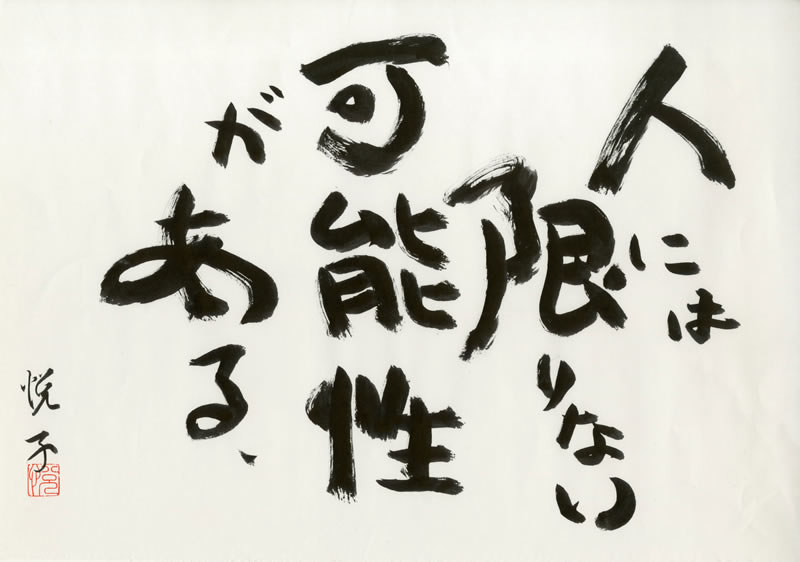 人には
限りない
可能性
がある、
悦子